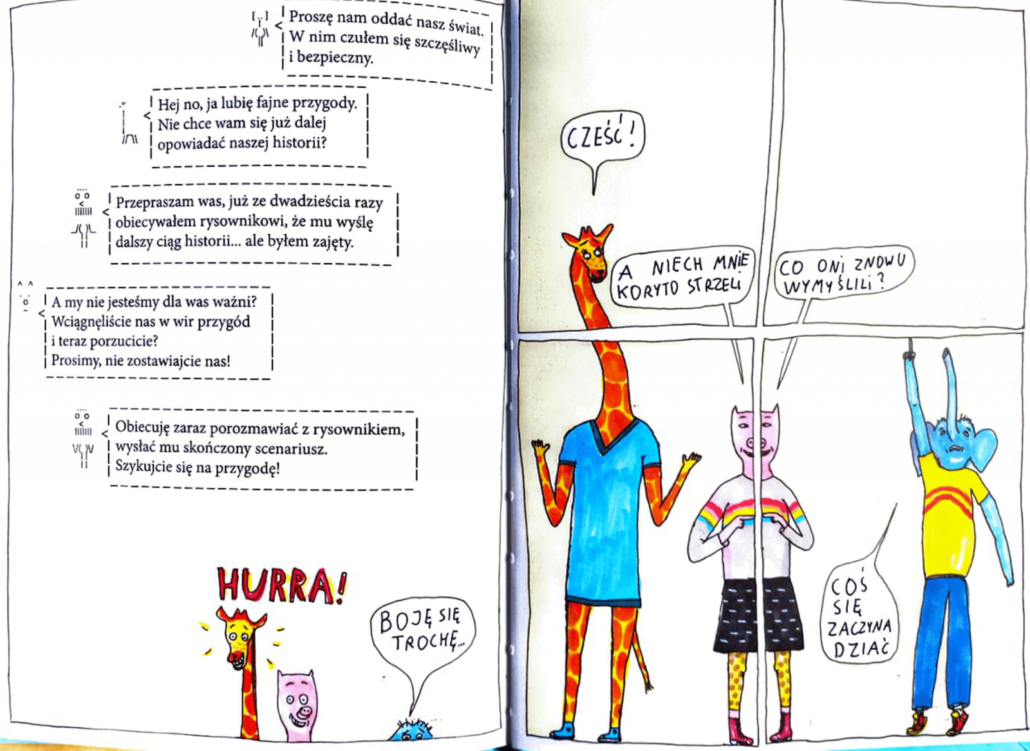 Proszę nam oddać nasz świat.
W nim czułem się szczęśliwy
i bezpieczny.
Hej no, ja lubię fajne przygody.
Nie chce wam się już dalej
opowiadać naszej historii?
Przepraszam was, już ze dwadzieścia razy
obiecywałem rysownikowi, że mu wyślę
dalszy ciąg historii... ale byłem zajęty.
A my nie jesteśmy dla was ważni?
Wciągnęliście nas w wir przygód
i teraz porzucicie?
Prosimy, nie zostawiajcie nas!
Obiecuję zaraz porozmawiać z rysownikiem,
wysłać mu skończony scenariusz.
Szykujcie się na przygodę!
HURRA!
BOJĘ SIĘ
TROCHĘ...
CZEŚĆ!
A NIECH MNIE
KORYTO STRZELI
CO ONI ZNOWU
WYMYŚLILI?
COŚ
SIĘ
ZACZYNA
DZIAĆ